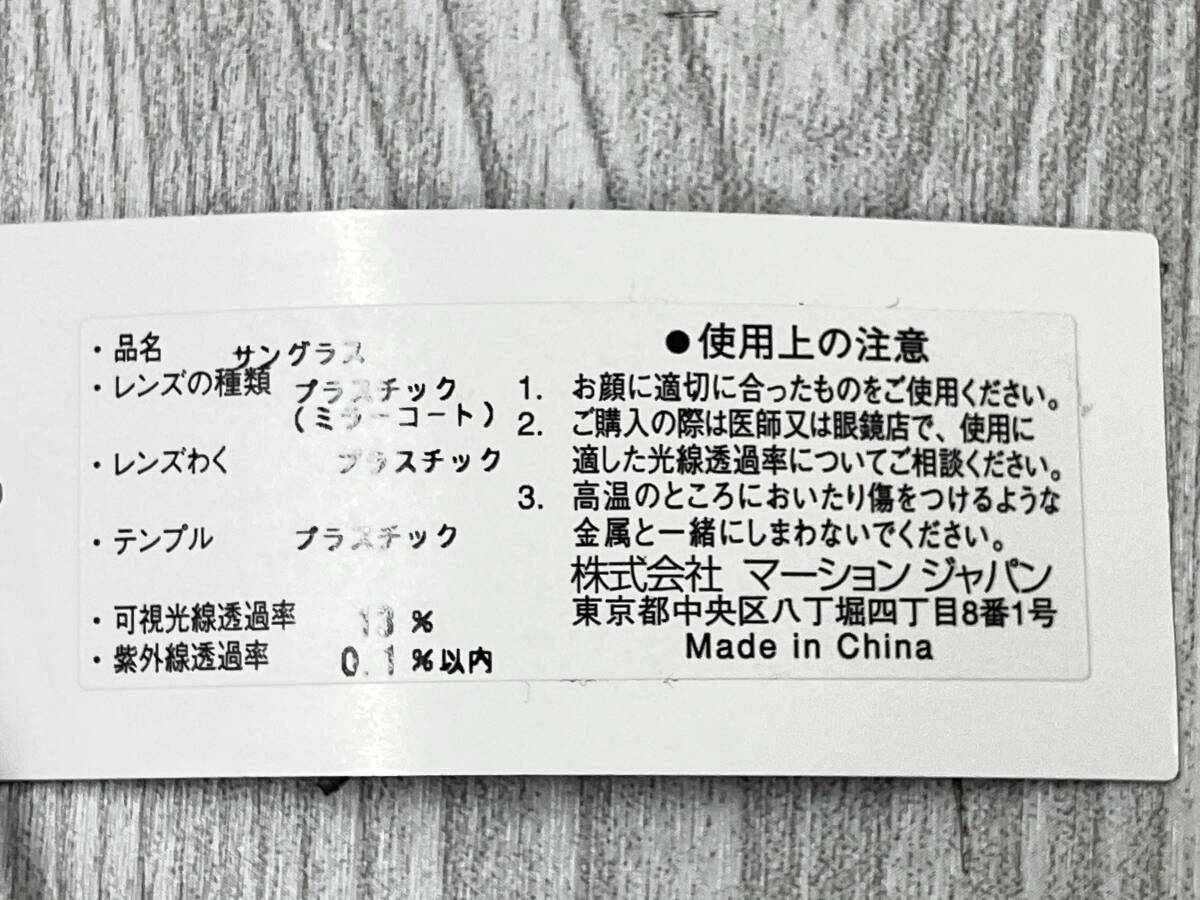 ・品名 サングラス
・レンズの種類 プラスチック
(ミラーコート)
・レンズわく プラスチック
・テンプル プラスチック
・可視光線透過率 13 %
・紫外線透過率 0.1 %以内
●使用上の注意
1. お顔に適切に合ったものをご使用ください。
2. ご購入の際は医師又は眼鏡店で、使用に
適した光線透過率についてご相談ください。
3. 高温のところにおいたり傷をつけるような
金属と一緒にしまわないでください。
株式会社 マーション ジャパン
東京都中央区八丁堀四丁目8番1号
Made in China